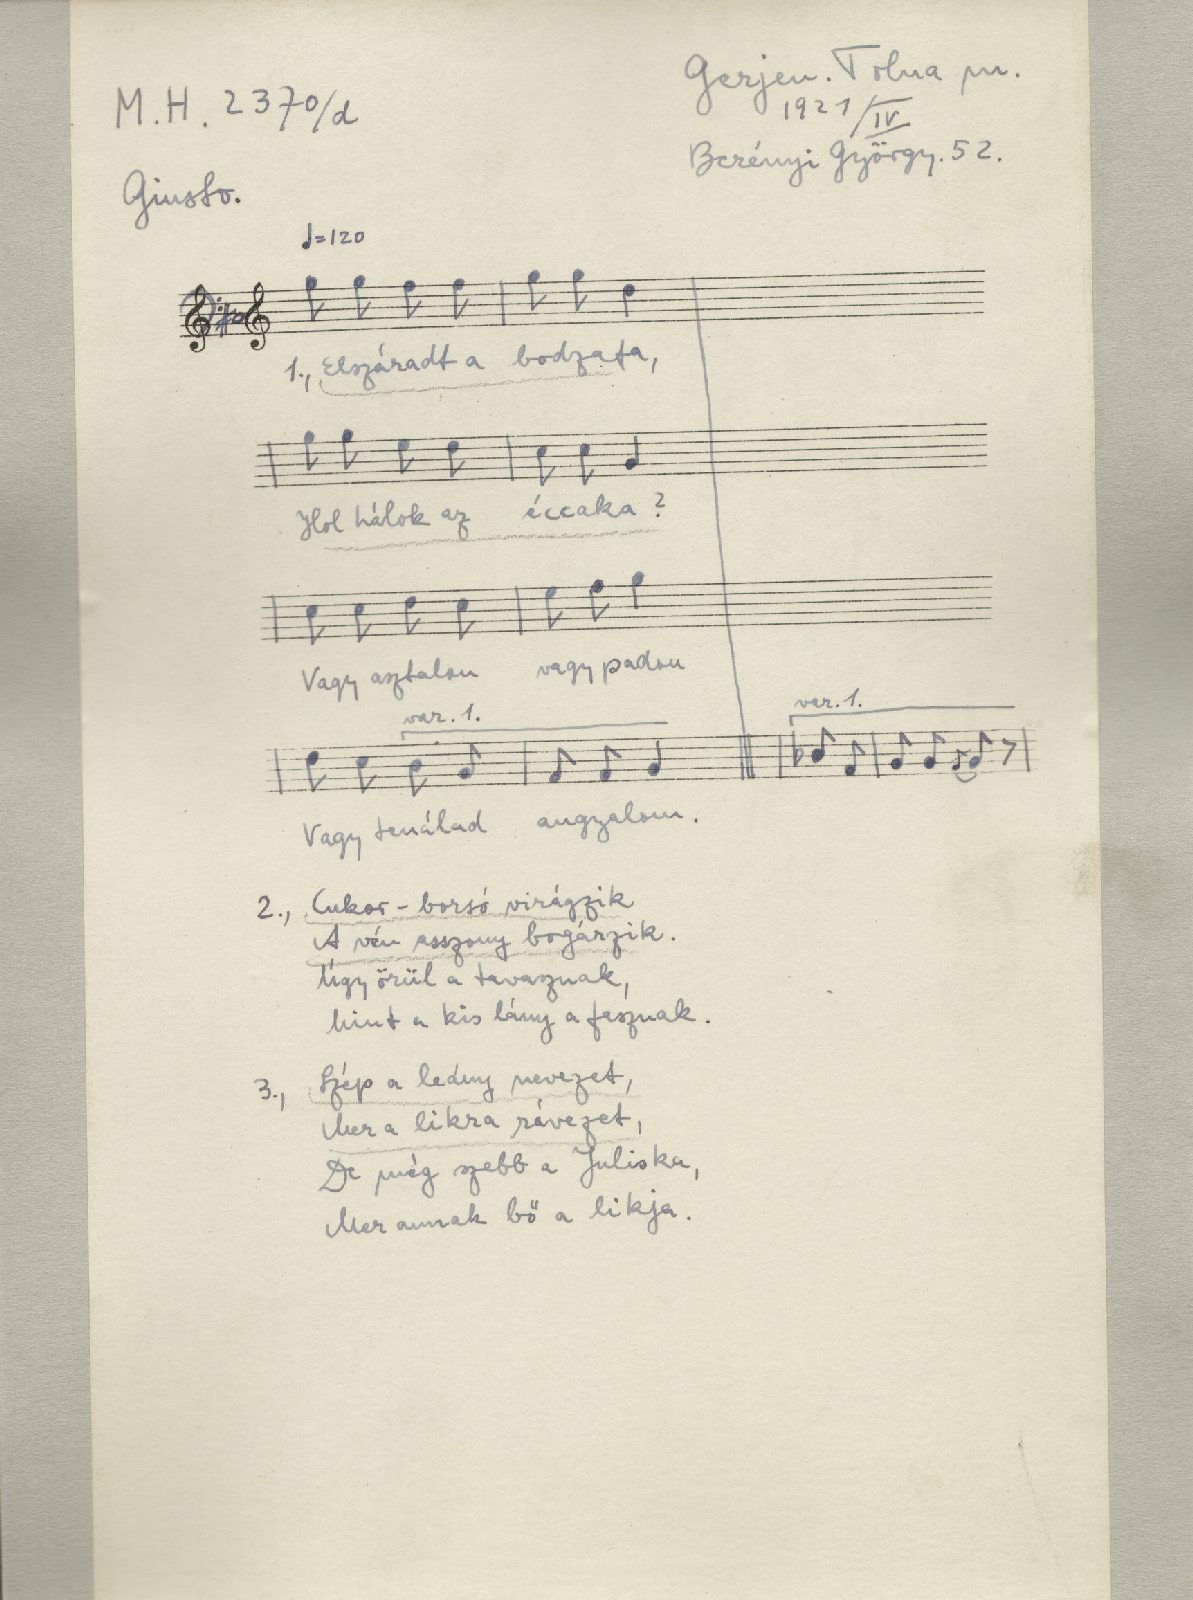 M.H. 2370/d
Gerjen. Tolna m.
1921/IV
Berényi György. 52.
Giusto.
♩=120
1., Elszáradt a bodzafa,
Hol hálok az éccaka?
Vagy asztalon vagy padon
var. 1.
var. 1.
Vagy tenálad angyalom.
2., Cukor-borsó virágzik
A vén asszony bogárzik.
Úgy örül a tavasznak,
Mint a kis lány a fasznak.
3., Szép a leány nevezet,
Mer a likra rávezet,
De még szebb a Juliska,
Mer annak bő a likja.